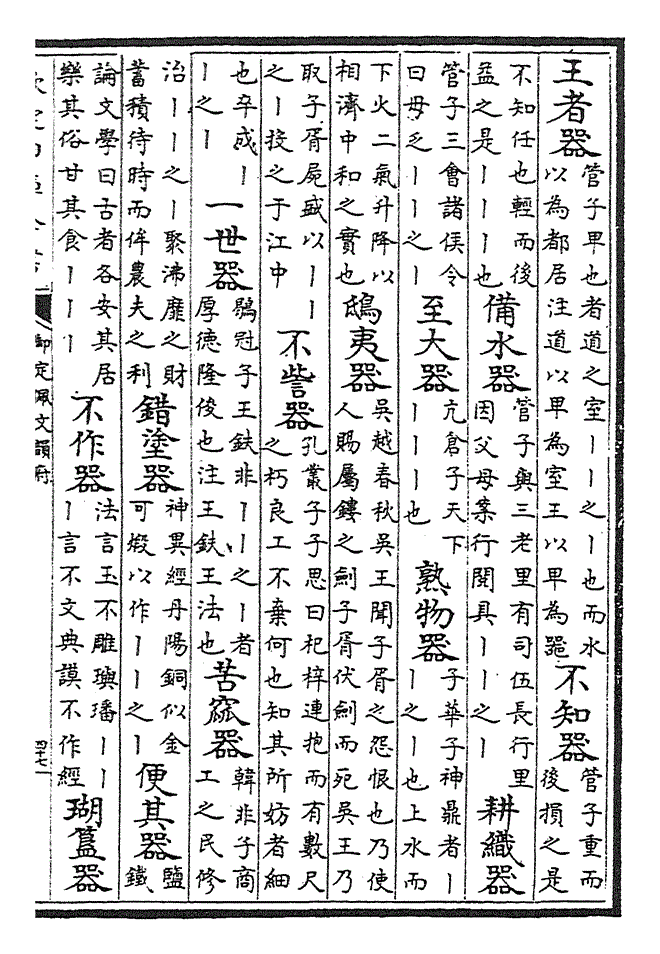 王者器管子卑也者道之室丨丨之丨也而水以為都居注道以卑為室王以卑為器不知器管子重而後損之是
不知任也輕而後益之是丨丨丨也備水器管子與三老里有司伍長行里因父母案行閱具丨丨之丨耕織器
管子三會諸侯令曰毋乏丨丨之丨至大器亢倉子天下丨丨丨也熟物器子華子神鼎者丨丨之丨也上水而
下火二氣升降以相濟中和之實也鴟夷器吳越春秋吳王聞子胥之怨恨也乃使人賜屬鏤之劍子胥伏劍而死吳王乃
取子胥屍盛以丨丨之丨投之于江中不訾器孔叢子子思曰杞梓連抱而有數尺之朽良工不棄何也知其所妨者細
也卒成丨丨之丨一世器鶡冠子王鈇非丨丨之丨者厚德隆俊也注王鈇王法也苦窳器韓非子商工之民修
治丨丨之丨聚沸靡之財蓄積待時而侔農夫之利錯塗器神異經丹陽銅似金可煅以作丨丨之丨便其器鹽鐵
論文學曰古者各安其居樂其俗甘其食丨丨丨不作器法言玉不雕璵璠丨丨丨言不文典謨不作經瑚簋器
欽定四庫全書
御定佩文韻府
四十七